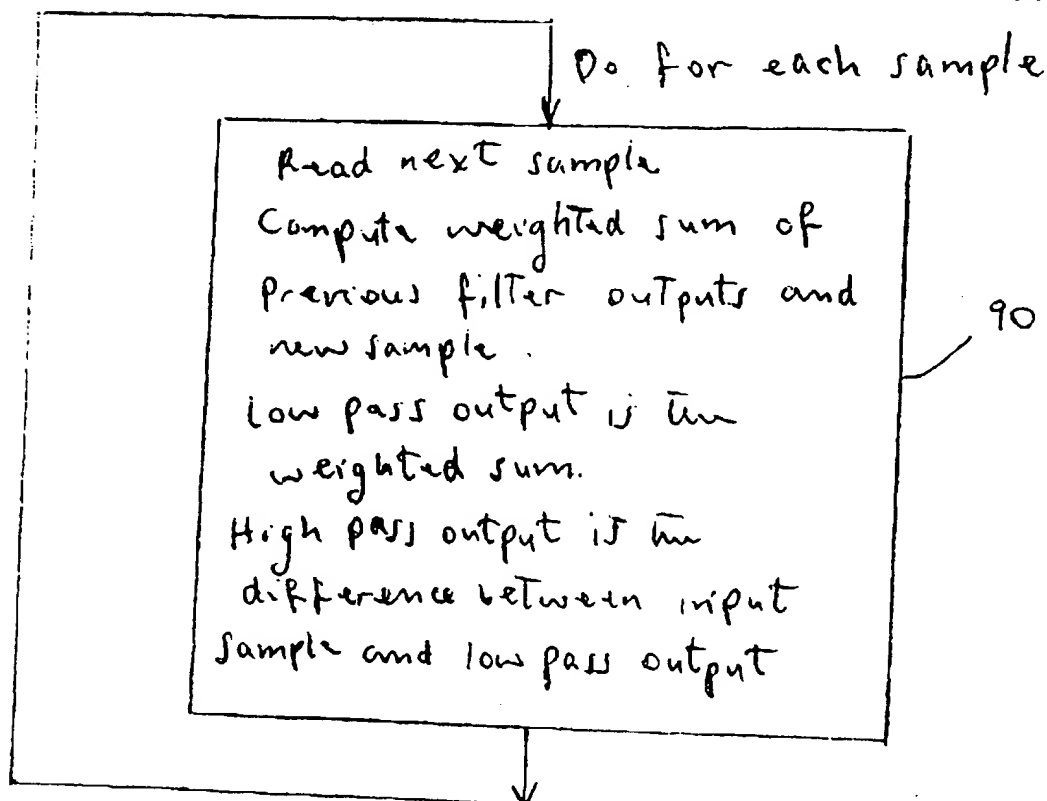 Do for each sample
Read next sample
Compute weighted sum of
previous filter outputs and
new sample.
90
Low pass output is the
weighted sum.
High pass output is the
difference between input
sample and low pass output